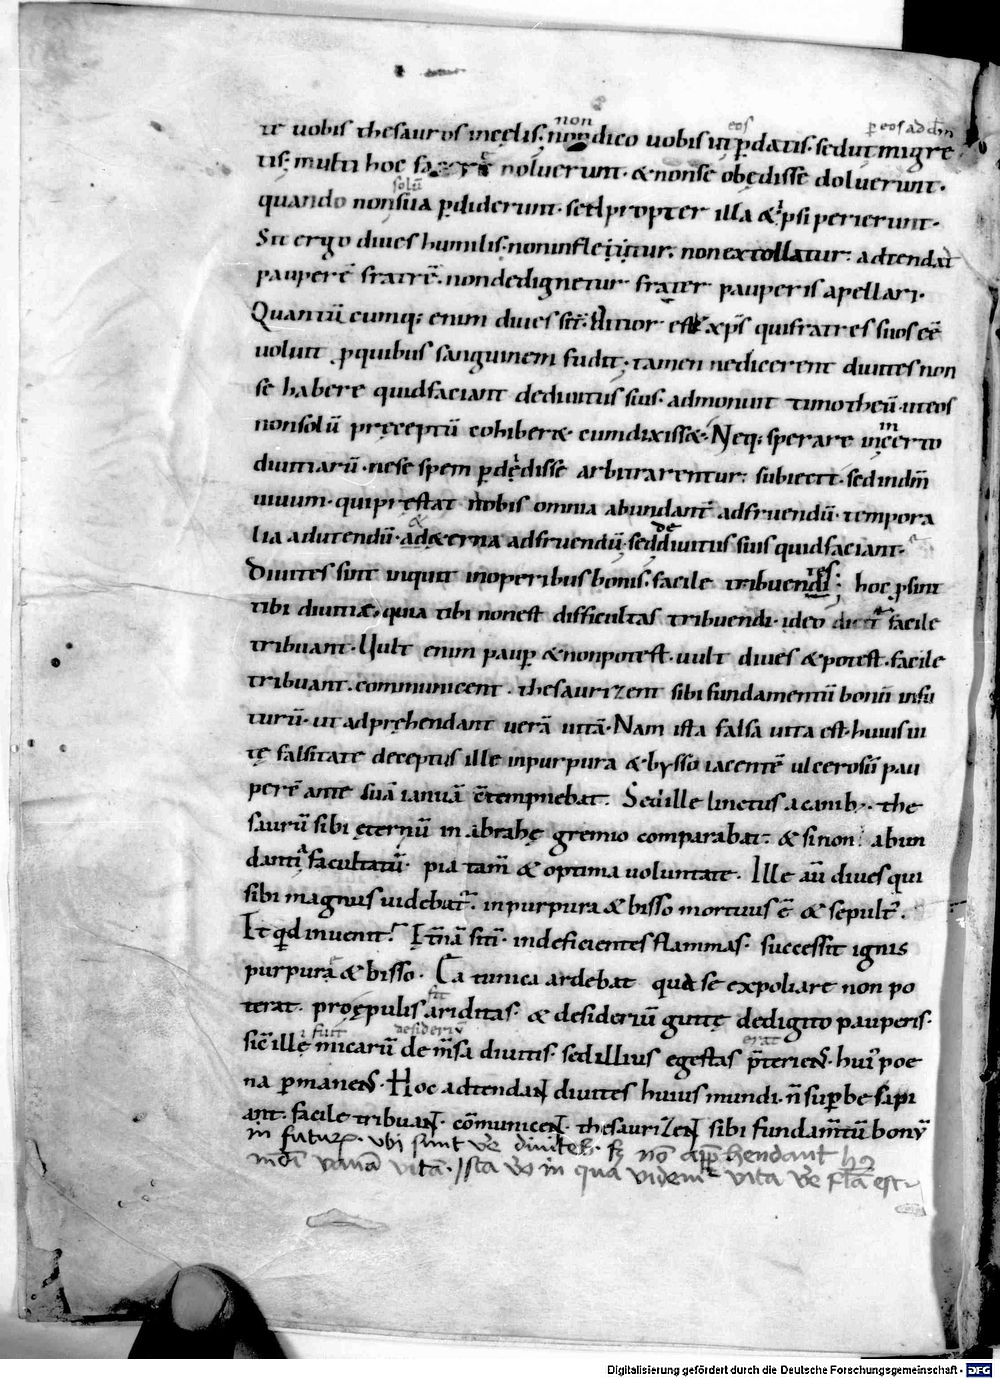 te uobis thesauros in cęlis; non dico uobis ut eos ꝑdatis. sed ut migre
tis; multi hoc noluerunt. & non se obędisse doluerunt.
quando non solū sua ꝑdiderunt. sed propter illa & ipsi perierunt.
Sit ergo diues humilis. non infletur; non extollatur; adtendat
pauperē fratrē. non dedignetur frater pauperis apellari.
Quantūcumq; enim diues sit. ditior est xp̄s qui fratres suos eē
uoluit ꝓ quibus sanguinem fudit; tamen ne dicerent diuites non
se habere quid faciant de diuitiis suis. admonuit timotheū. ut eos
non solū pręceptū coħiber& cum dixiss&. Neq; sperare in incerto
diuitiarū. ne se spem ꝑdędisse arbitrarentur; subiecit. sed in dm̄
uiuum. qui pręstat nobis omnia abundant̄ ad fruendū. tempora
lia ad utendū. & ad &erna ad fruendū; sed de diuitiis suis quid faciant.
Diuites sint inquit in operibus bonis. facile tribuentes; hoc ꝓsint
tibi diuitiæ. quia tibi non est difficultas tribuendi. ideo facile
tribuant. Uult enim pauꝑ & non potest. uult diues & potest. facile
tribuant. communicent. thesaurizent sibi fundamentū bonū in fu
turū. ut adpręhendant uerā uitā. Nam ista falsa uita est. huius ui
tę falsitate deceptus ille in purpura & bysso iacentē ulcerosū pau
perē ante suā ianuā cōtempnebat. Sed ille linctus a canib;. the
saurū sibi ęternū in abrahę gremio comparabat; & si non abun
danti facultatū. pia tam̄ & optima uoluntate. Ille aū diues qui
sibi magnus uidebat̄. in purpura & bisso mortuus ē & sepult̄.
Et qd inuenit? Et̄nā sitī. indeficientes flammas. successit ignis
purpurę & bisso. Ea tunica ardebat qua se expoliare non po
terat. pro ępulis fit ariditas. & desideriū guttę de digito pauperis.
sic̄ ille micarū de m̄sa diuitis. sed illius egestas p̄teriens. hui poe
na ꝑmanens. Hoc adtendant diuites huius mundi. n̄ suꝑbe sapi
ant. facile tribuant. cōmunicent. thesaurizent sibi fundam̄tū bonū
in futuꝝ. ubi sunt ue diuites. sꝫ no apphendant
mūdi vanā vitā. Ista vo in qua videm vita